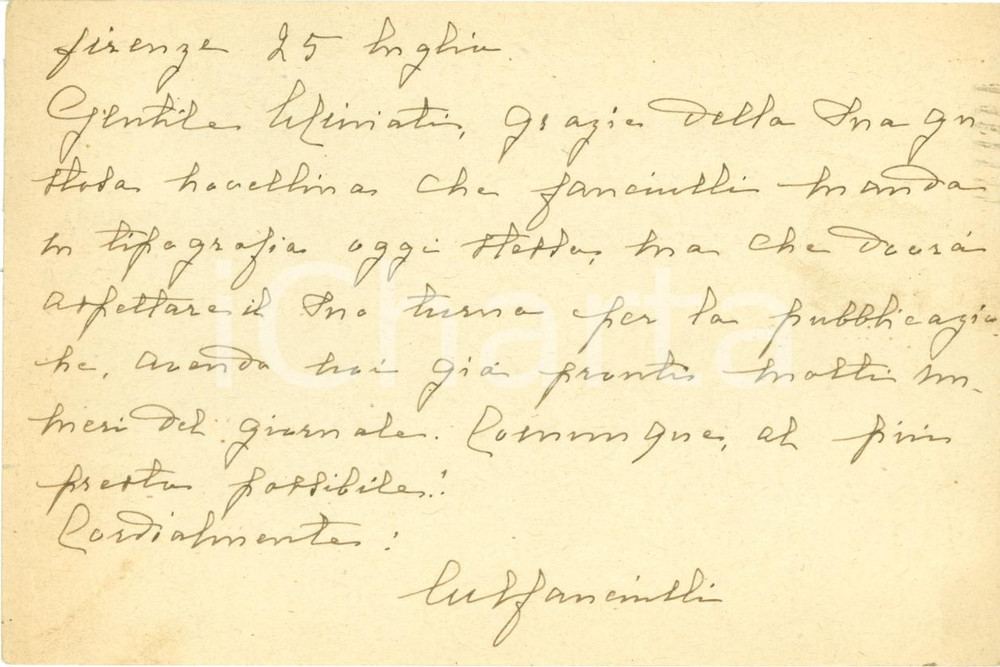 Firenze 25 luglio
Gentile Miniati, grazie della Sua gu
stosa novellina che Fanciulli manda
in tipografia oggi stesso, ma che dovrà
aspettare il suo turno per la pubblicazio
ne, avendo noi già pronti molti nu-
meri del giornale. Comunque, al più
presto possibile!
Cordialmente:
Fanciulli
iCharta